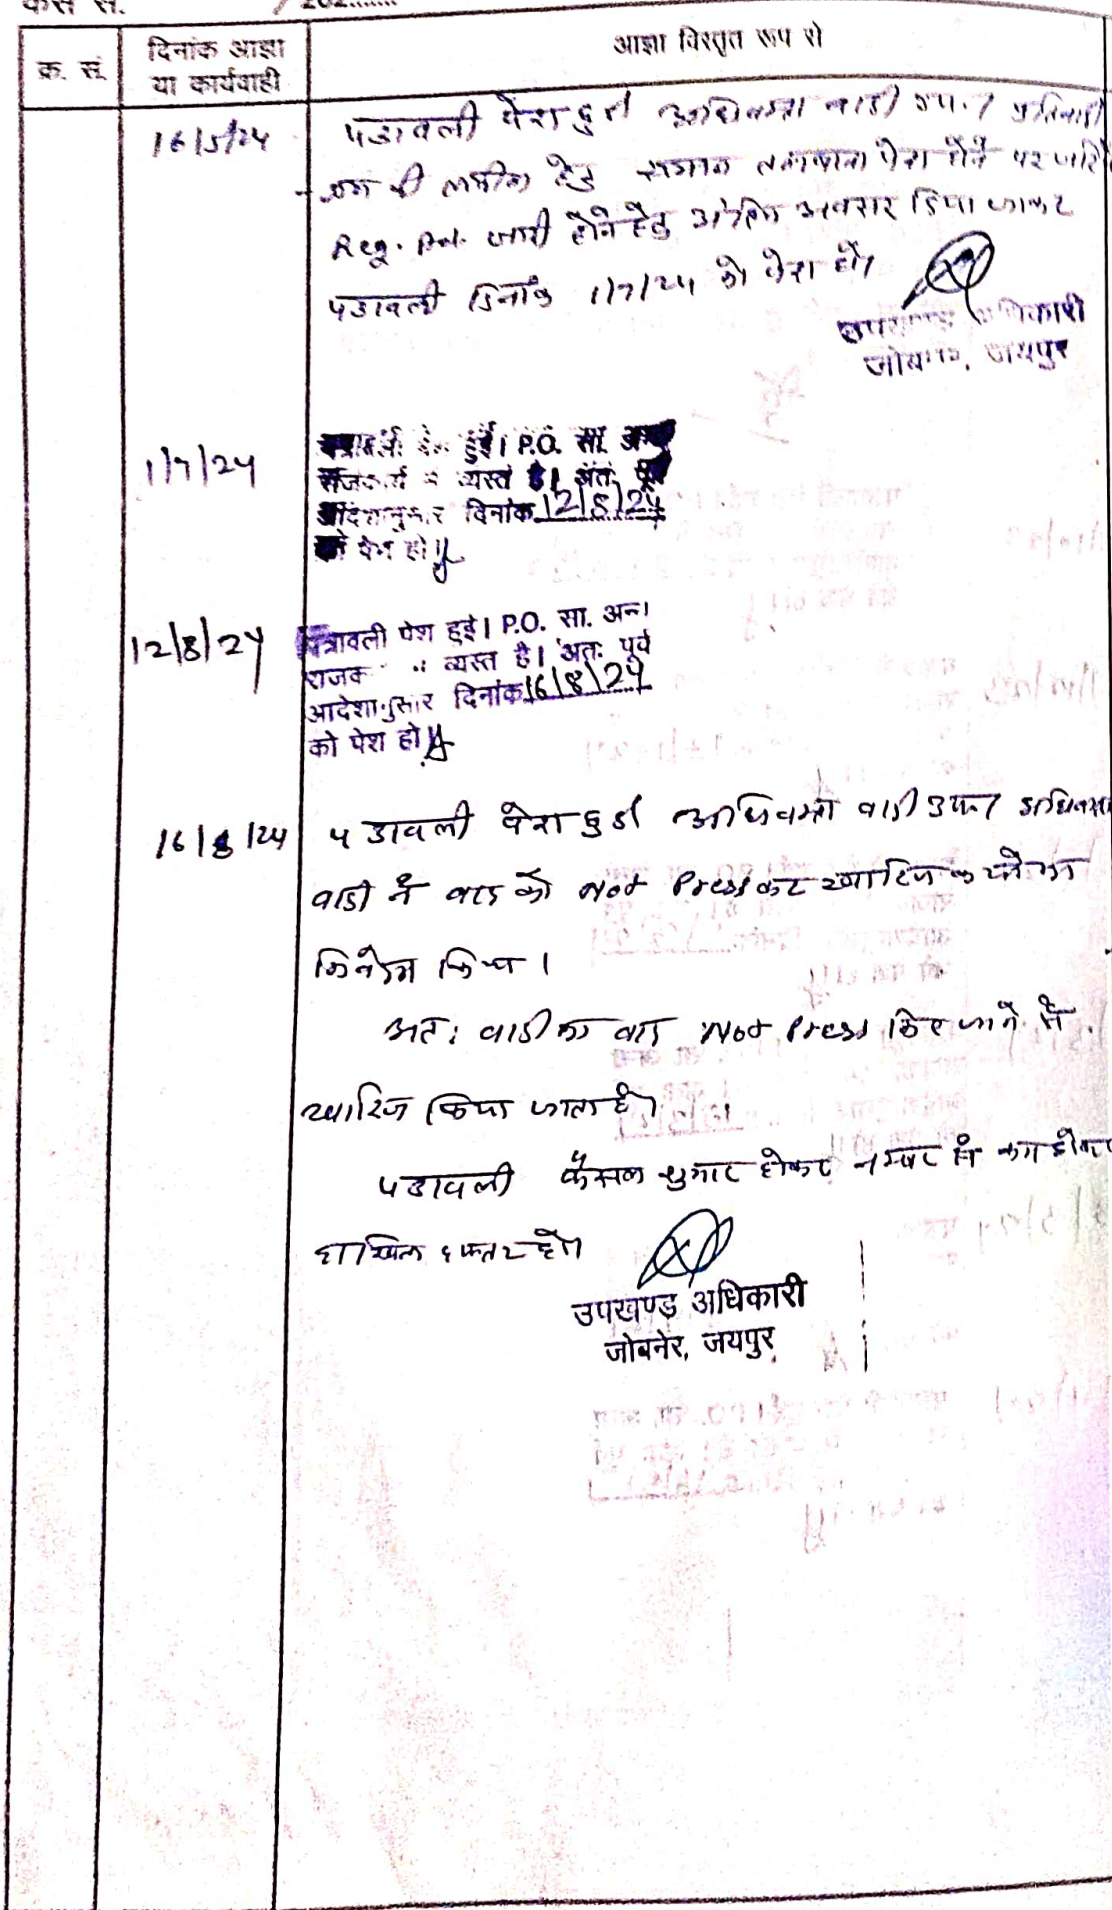 केस सं. / 202.......
क्र. सं. दिनांक आज्ञा या कार्यवाही आज्ञा विस्तृत रूप से
16/5/24 पत्रावली पेश हुई अधिवक्ता वादी उप.
की तामील हेतु तलबाना पेश होने पर
Reg. जारी होने हेतु अंतिम अवसर दिया जाकर
पत्रावली दिनांक 1/7/24 को पेश हो।
उपखण्ड अधिकारी
जोबनेर, जयपुर
1/7/24 पत्रावली पेश हुई। P.O. सा. अन्य
राजकार्य में व्यस्त है। अतः पूर्व
आदेशानुसार दिनांक 12/8/24
को पेश हो।
12/8/24 पत्रावली पेश हुई। P.O. सा. अन्य
राजक व्यस्त है। अतः पूर्व
आदेशानुसार दिनांक 16/8/24
को पेश हो।
16/8/24 पत्रावली पेश हुई अधिवक्ता वादी उप. अधिवक्ता
वादी ने वाद को Not Press कर खारिज करने का
निवेदन किया।
अतः वादी का वाद Not Press किए जाने से
खारिज किया जाता है।
पत्रावली फैसल शुमार होकर नम्बर से कम होकर
दाखिल दफ्तर हो।
उपखण्ड अधिकारी
जोबनेर, जयपुर